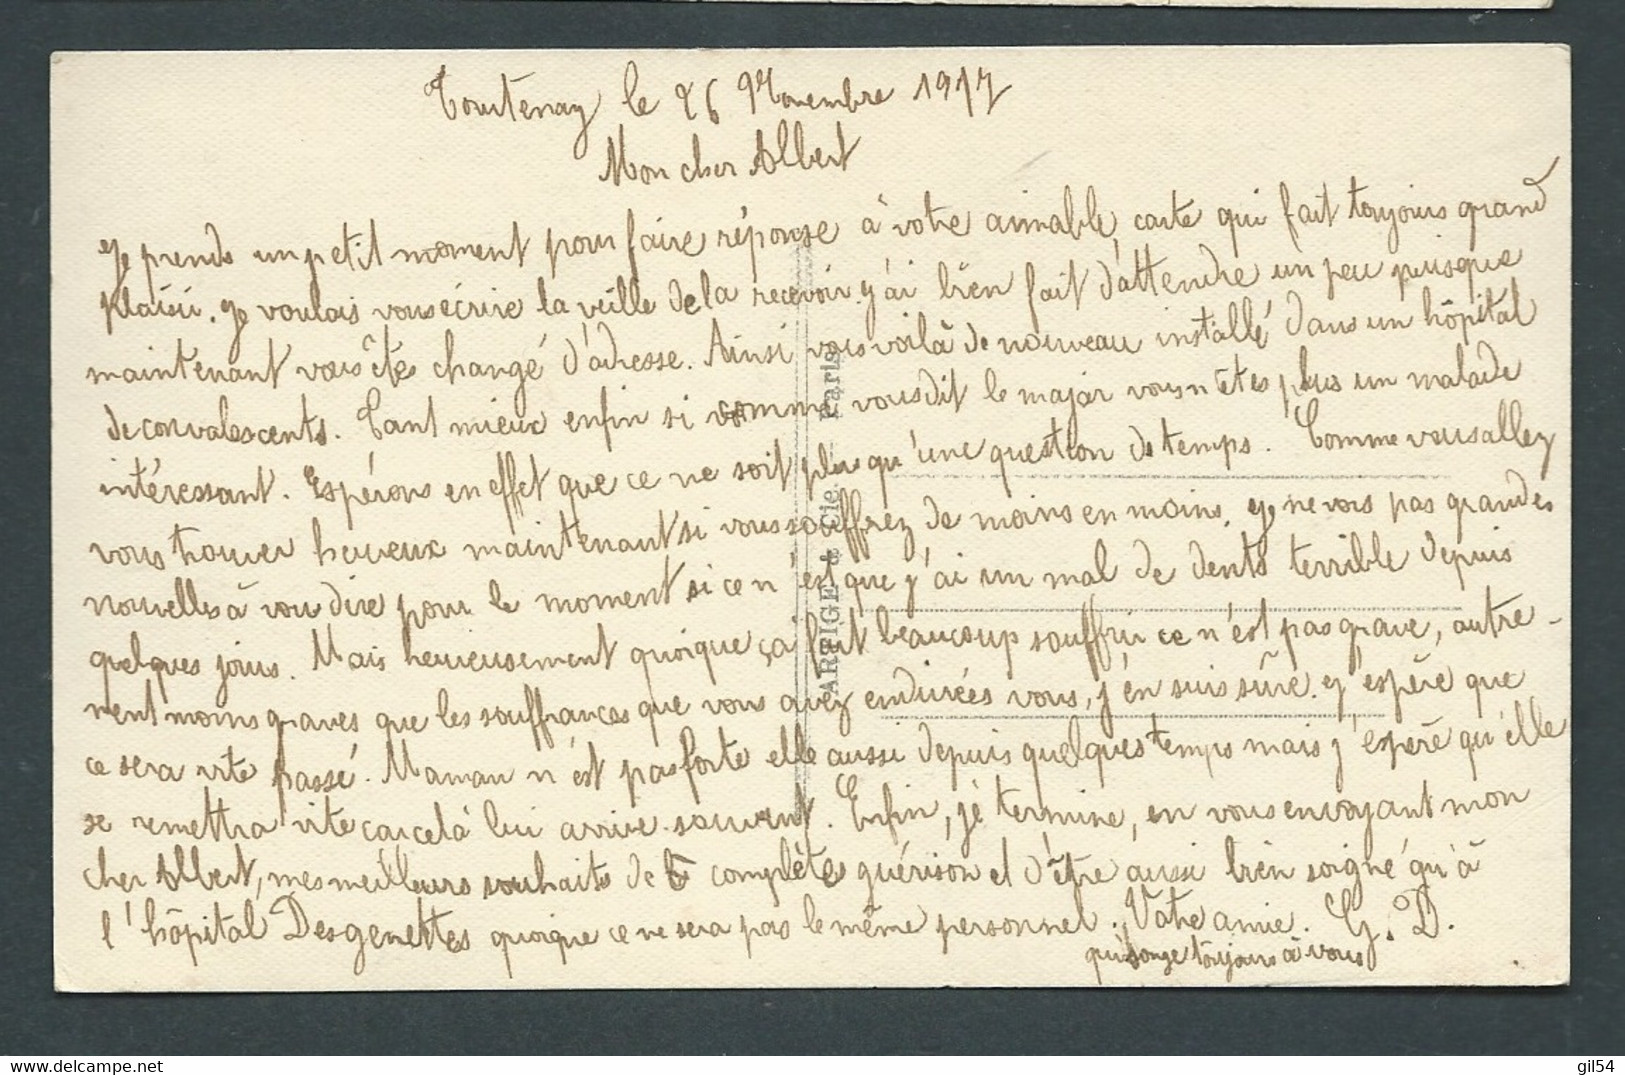 Tourtenay le 26 Novembre 1917
Mon cher Albert
Je prends un petit moment pour faire réponse à votre aimable carte qui fait toujours grand
plaisir. Je voulais vous écrire la veille de la recevoir j'ai bien fait d'attendre un peu puisque
maintenant vous êtes changé d'adresse. Ainsi vous voilà de nouveau installé dans un hôpital
de convalescents. Tant mieux enfin si comme vous dit le major vous n'êtes plus un malade
intéressant. Espérons en effet que ce ne soit plus qu'une question de temps. Comme vous allez
vous trouver heureux maintenant si vous souffrez de moins en moins. Je ne vois pas grandes
nouvelles à vou dire pour le moment si ce n'est que j'ai un mal de dents terrible depuis
quelques jours. Mais heureusement quoique ça fait beaucoup souffrir ce n'est pas grave, autre-
ment moins graves que les souffrances que vous avez endurées vous, j'en suis sûre. J'espère que
ce sera vite passé. Maman n'est pas forte elle aussi depuis quelques temps mais j'espère qu'elle
se remettra vite car celà lui arrive souvent. Enfin, je termine, en vous envoyant mon
cher Albert, mes meilleurs souhaits de complète guérison et d'être aussi bien soigné qu'à
l'hôpital Desgenettes quoique ce ne sera pas le même personnel. Votre amie. G. D.
qui songe toujours à vous
ARRIGE & Cie - Paris
gil54